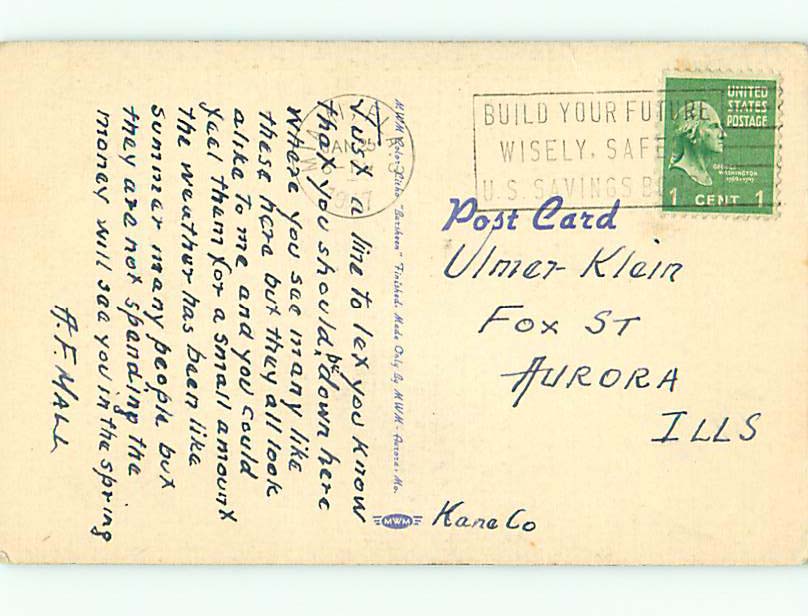 Just a line to let you know
that you should be down here
where you see many like
these here but they all look
alike to me and you could
feel them for a small amount
the weather has been like
summer many people but
they are not spending the
money will see you in the spring
A.F. MALL
MWM Color-Litho "Dursheen" Finished. Made Only By MWM - Aurora, Mo.
MWM
MIAMI FLA
JAN 25
1947
BUILD YOUR FUTURE
WISELY, SAFE
U.S. SAVINGS B
UNITED
STATES
POSTAGE
GEORGE
WASHINGTON
1789-1797
1 CENT 1
Post Card
Ulmer Klein
Fox ST
AURORA
ILLS
Kane Co